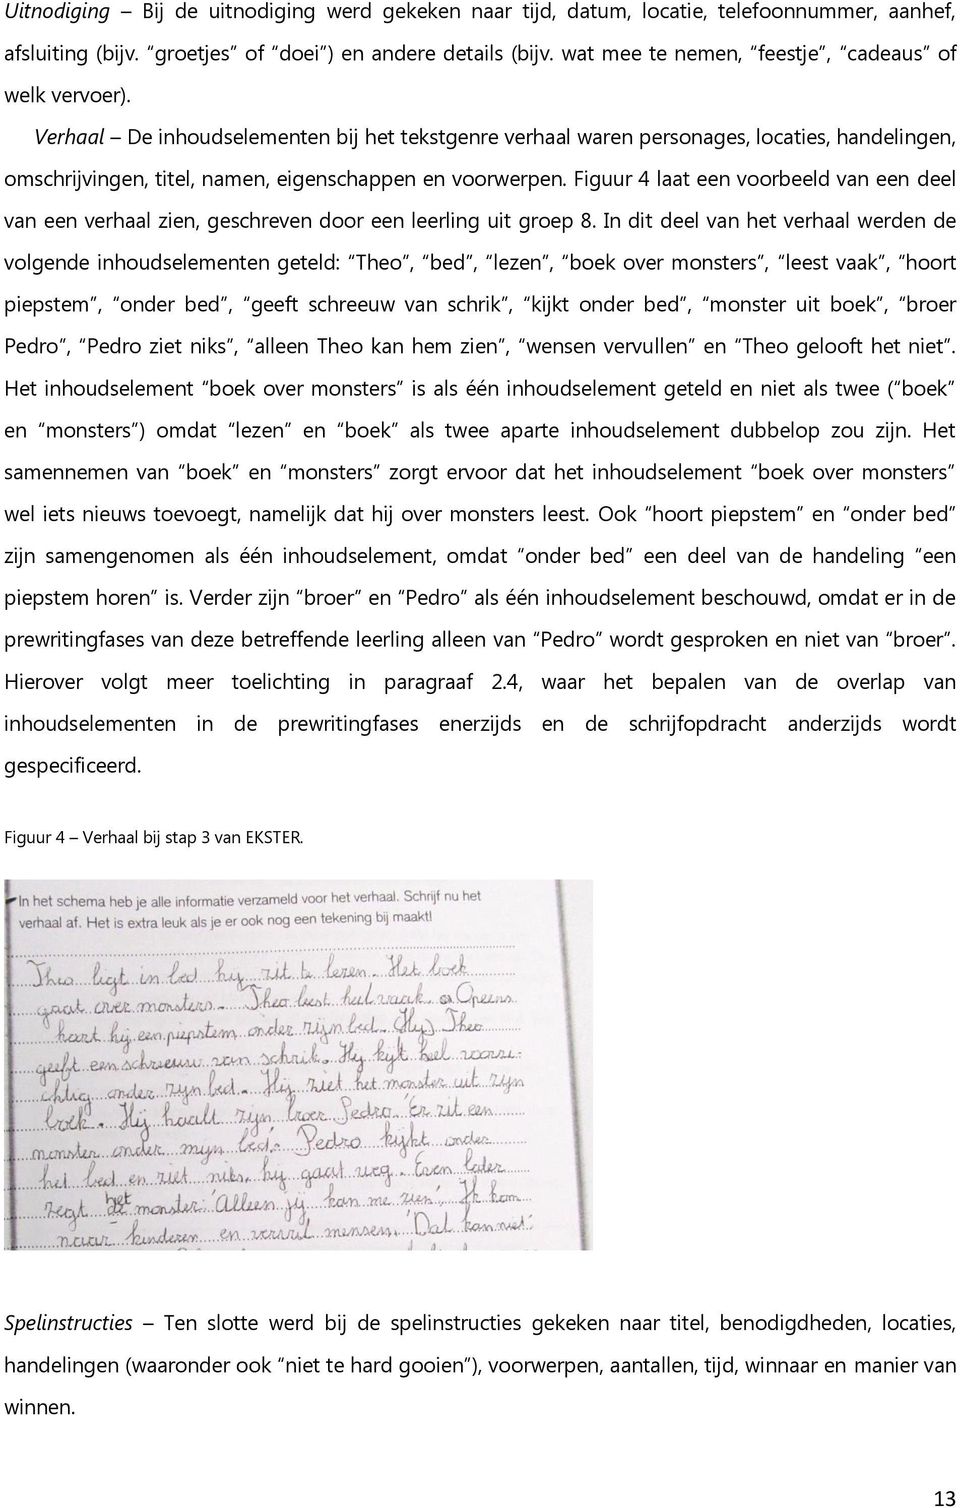 Uitnodiging – Bij de uitnodiging werd gekeken naar tijd, datum, locatie, telefoonnummer, aanhef,
afsluiting (bijv. “groetjes” of “doei”) en andere details (bijv. wat mee te nemen, “feestje”, “cadeaus” of
welk vervoer).
Verhaal – De inhoudselementen bij het tekstgenre verhaal waren personages, locaties, handelingen,
omschrijvingen, titel, namen, eigenschappen en voorwerpen. Figuur 4 laat een voorbeeld van een deel
van een verhaal zien, geschreven door een leerling uit groep 8. In dit deel van het verhaal werden de
volgende inhoudselementen geteld: “Theo”, “bed”, “lezen”, “boek over monsters”, “leest vaak”, “hoort
piepstem”, “onder bed”, “geeft schreeuw van schrik”, “kijkt onder bed”, “monster uit boek”, “broer
Pedro”, “Pedro ziet niks”, “alleen Theo kan hem zien”, “wensen vervullen” en “Theo gelooft het niet”.
Het inhoudselement “boek over monsters” is als één inhoudselement geteld en niet als twee (“boek”
en “monsters”) omdat “lezen” en “boek” als twee aparte inhoudselement dubbelop zou zijn. Het
samennemen van “boek” en “monsters” zorgt ervoor dat het inhoudselement “boek over monsters”
wel iets nieuws toevoegt, namelijk dat hij over monsters leest. Ook “hoort piepstem” en “onder bed”
zijn samengenomen als één inhoudselement, omdat “onder bed” een deel van de handeling “een
piepstem horen” is. Verder zijn “broer” en “Pedro” als één inhoudselement beschouwd, omdat er in de
prewritingfases van deze betreffende leerling alleen van “Pedro” wordt gesproken en niet van “broer”.
Hierover volgt meer toelichting in paragraaf 2.4, waar het bepalen van de overlap van
inhoudselementen in de prewritingfases enerzijds en de schrijfopdracht anderzijds wordt
gespecificeerd.
Figuur 4 – Verhaal bij stap 3 van EKSTER.
In het schema heb je alle informatie verzameld voor het verhaal. Schrijf nu het
verhaal af. Het is extra leuk als je er ook nog een tekening bij maakt!
Theo ligt in bed hij zit te lezen. Het boek
gaat over monsters. Theo leest heel vaak. Opeens
hoort hij een piepstem onder zijn bed. (Hij) Theo
geeft een schreeuw van schrik. Hij kijkt heel voorzi-
chtig onder zijn bed. Hij ziet het monster uit zijn
boek. Hij haalt zijn broer Pedro. 'Er zit een
monster onder mijn bed.' Pedro kijkt onder
het bed en ziet niks. hij gaat weg. Even later
zegt het monster: 'Alleen jij kan me zien'. 'Ik kom
naar kinderen en vervul mensen. 'Dat kan niet'.
Spelinstructies – Ten slotte werd bij de spelinstructies gekeken naar titel, benodigdheden, locaties,
handelingen (waaronder ook “niet te hard gooien”), voorwerpen, aantallen, tijd, winnaar en manier van
winnen.
13